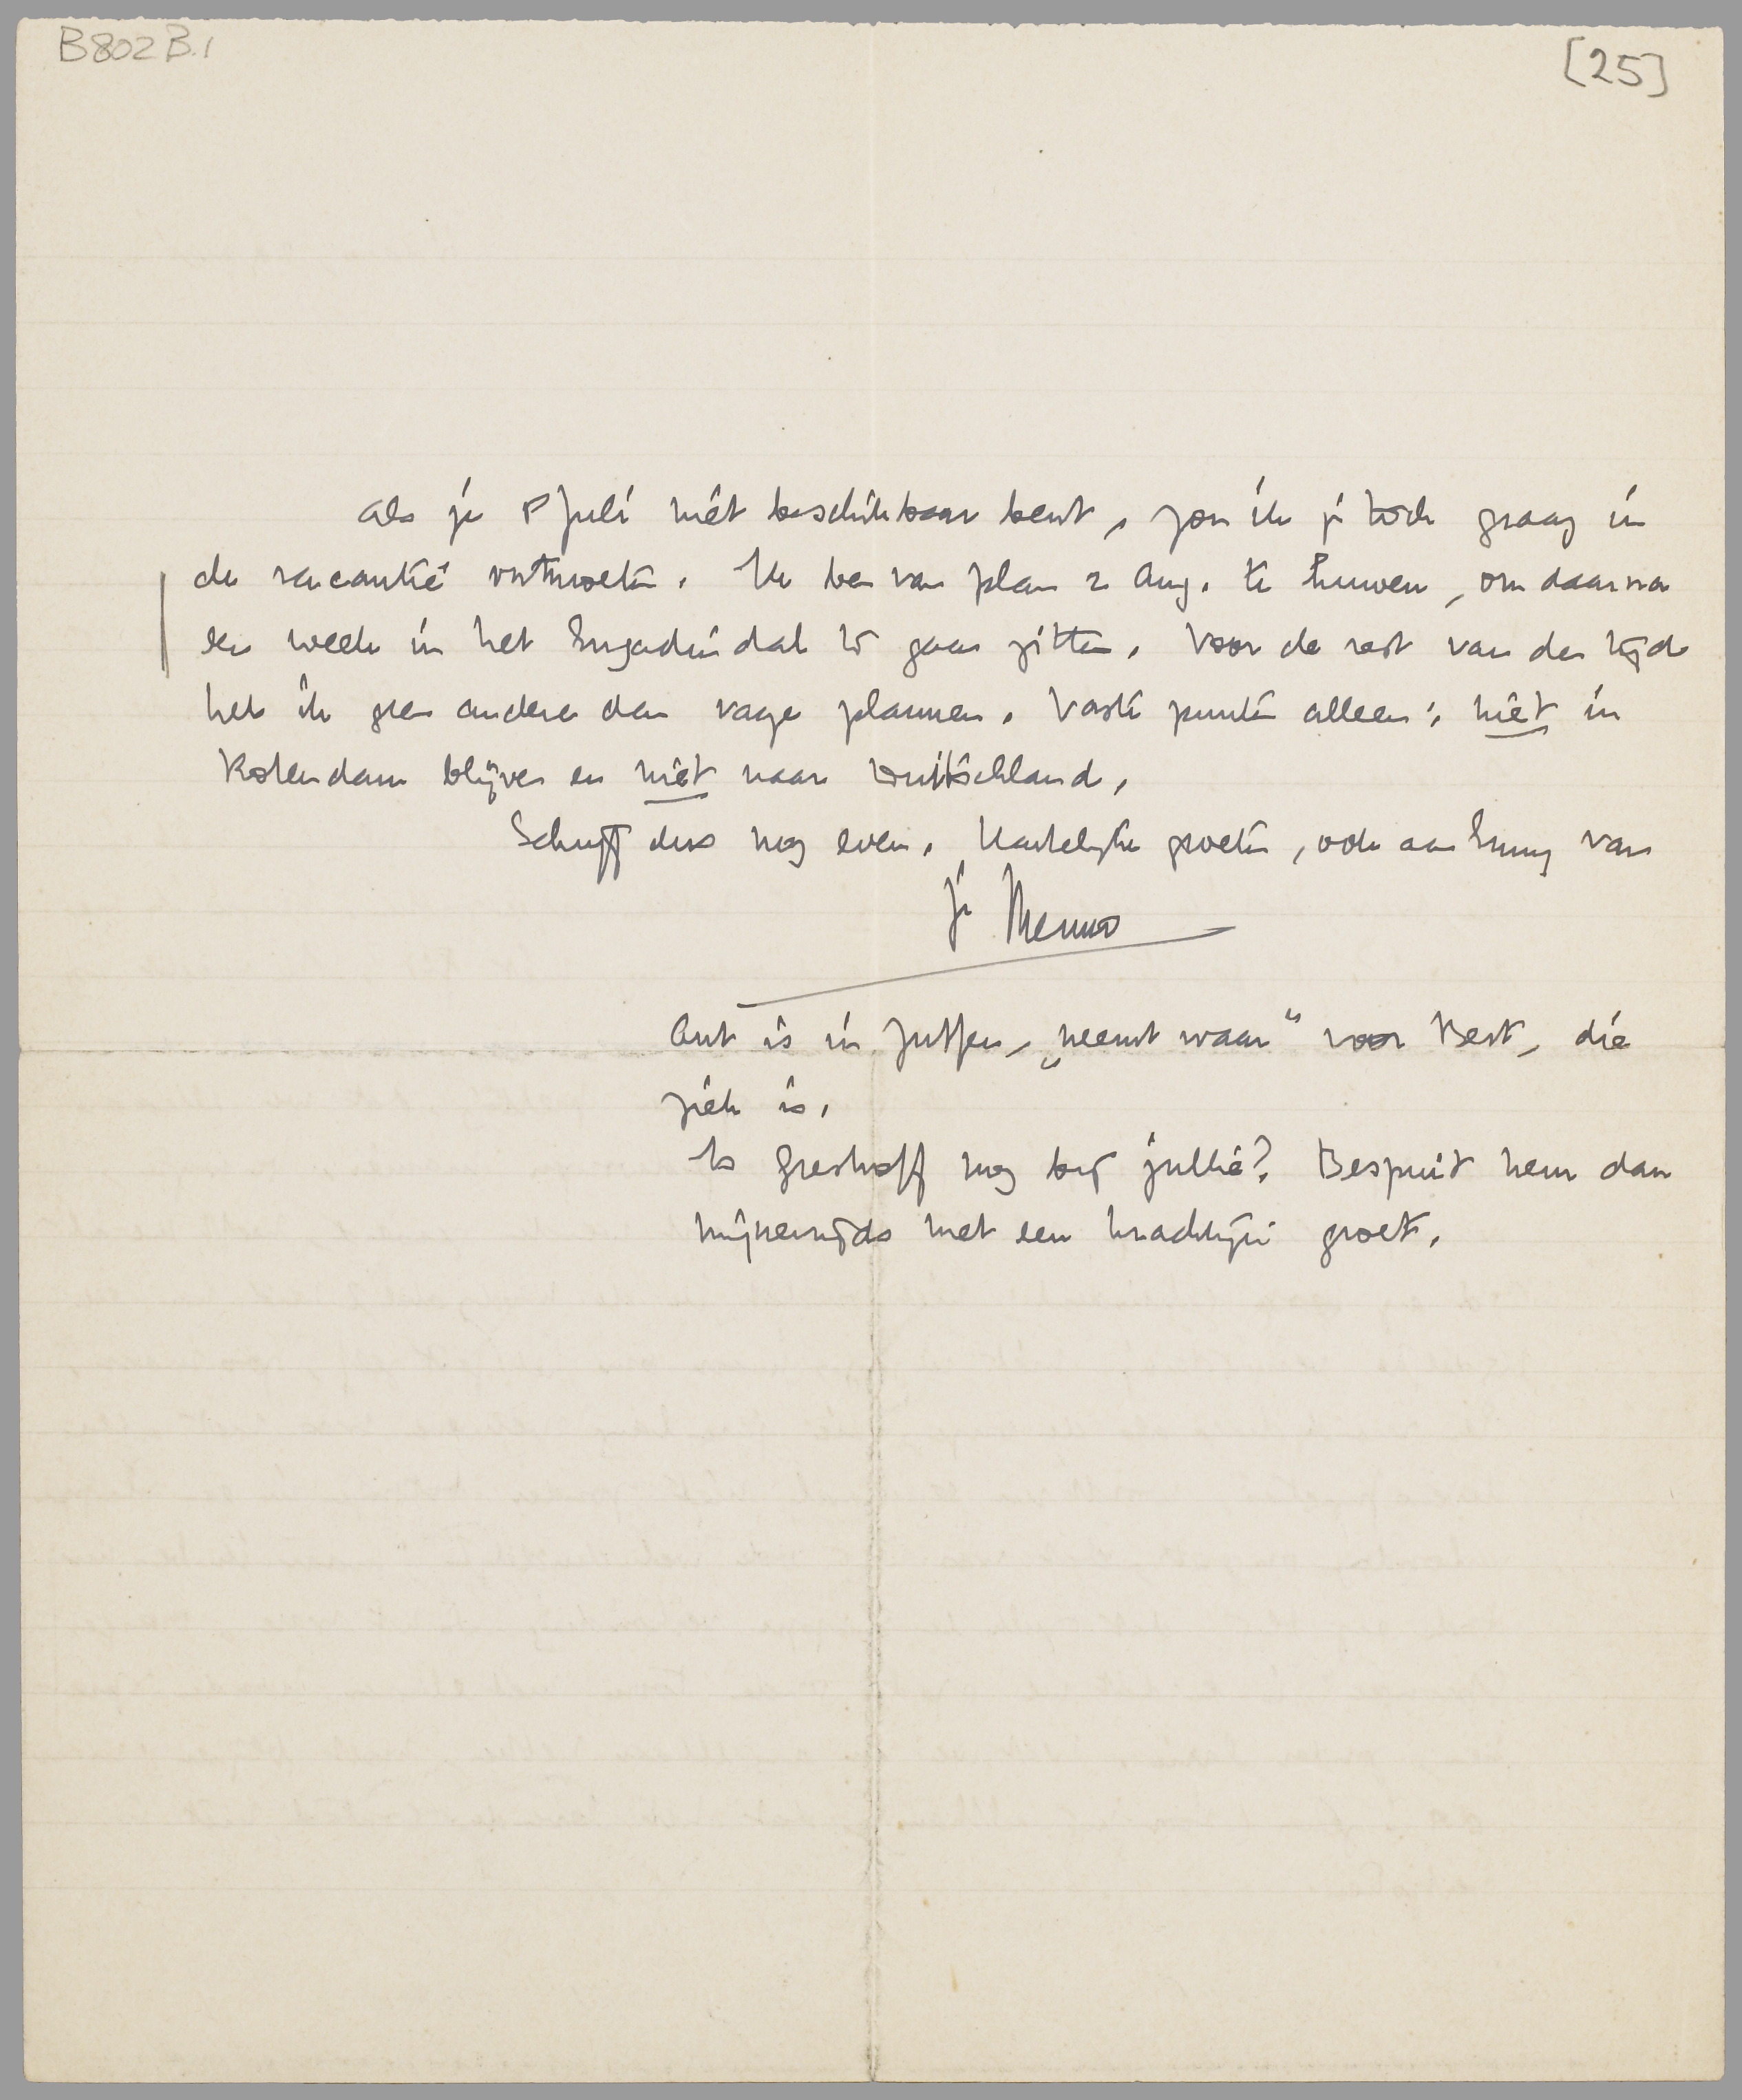 B802B.1
[25]
Als je 8 Juli niet beschikbaar bent, zou ik je toch graag in
de vacantie ontmoeten. Ik ben van plan 2 Aug. te huwen, om daarna
een week in het Engadindal te gaan zitten. Voor de rest van den tijd
heb ik geen andere dan vage plannen. Vaste punten alleen: niet in
Rotterdam blijven en niet naar Duitschland.
Schrijf dus nog even. Hartelijke groeten, ook aan Truug van
je Menno
Ant is in Zutfen, „neemt waar" voor Bert, die
ziek is.
Is Greshoff nog bij jullie? Bespuit hem dan
mijnerzijds met een krachtige groet.